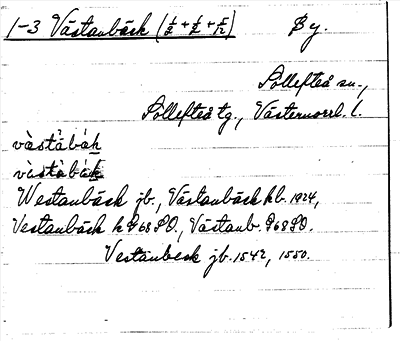 1-3 Västanbäck (1/2 + 1/2 + 5/12) By.
Sollefteå sn.,
Sollefteå tg., Västernorrl. l.
våståbäk
våståbäk
Westanbäck jb., Västanbäck hb. 1924,
Vestanbäck k 68 SO., Västanb. 68 SO.
Vestanbeck jb. 1542, 1550.